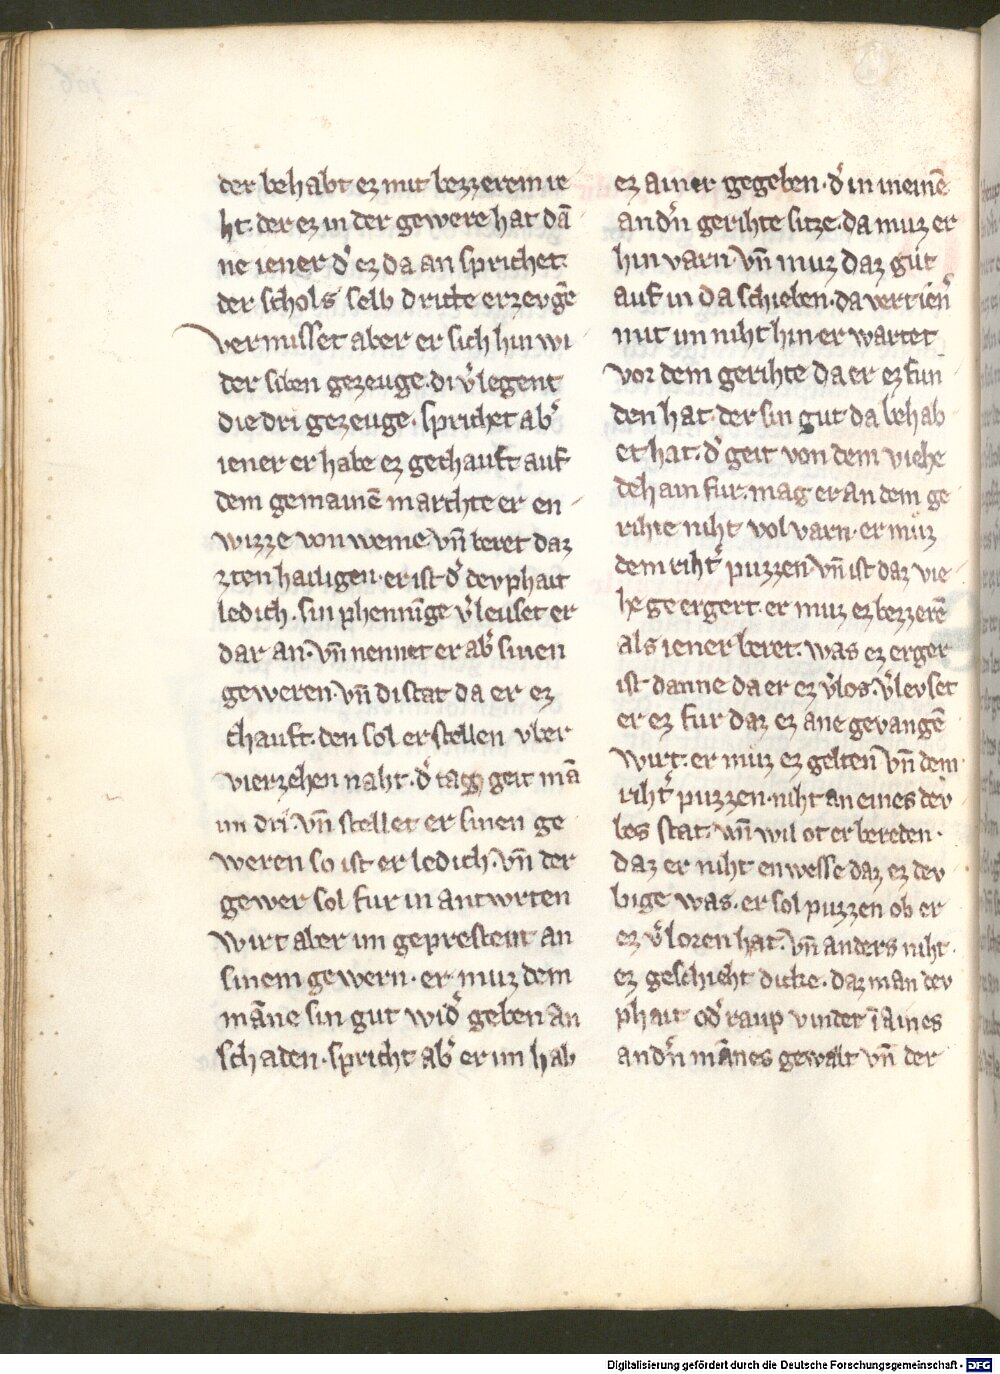 der behabt ez mit bezzerem re
ht. der ez in der gewere hat dā
ne iener d͛ ez da an sprichet.
der schol s͛ selb dritte erzevgē
vermisset aber er sich hin wi
der siben gezeuge. di v͛legent
die dri gezeuge. sprichet ab͛
iener er habe ez gechauft auf
dem gemainē marchte er en
wizze von weme vn̄ beret daz
zten hailigen. er ist d͛ devphait
ledich. sin phenninge v͛leuset er
dar an. vn̄ nennet er ab͛ sinen
geweren vn̄ di stat da er ez
chauft. den sol er stellen vber
vierzehen naht. d͛ tagg geit mā
im dri. vn̄ stellet er sinen ge
weren so ist er ledich. vn̄ der
gewer sol fur in antwrten
wirt aber im geprestent an
sinem gewern. er muz dem
māne sin gut wid͛ geben an
schaden. spricht ab͛ er im hab
ez ainer gegeben. d͛ in meinē
and͛n gerihte sitze. da muz er
hin varn vn̄ muz daz gut
auf in da schieben. da vert ien͛
mit im niht hin er wartet
vor dem gerihte da er ez fun
den hat. der sin gut da behab
et hat. d͛ geit von dem viehe
dehain fur. mag er an dem ge
rihte niht vol varn. er muz
dem riht͛ puzzen vn̄ ist daz vie
he ge ergert. er muz ez bezzerē
als iener beret. was ez erger
ist danne da er ez v͛los. v͛levset
er ez fur daz ez ane gevangē
wirt. er muz ez gelten vn̄ dem
riht͛ puzzen. niht an eines dev
bes stat. vn̄ wil ot er bereden.
daz er niht en wesse daz ez dev
bige was. er sol puzzen ob er
ez v͛loren hat. vn̄ anders niht.
ez geschieht dicke. daz man dev
phait od͛ raup vindet ī aines
and͛n mānes gewalt vn̄ der
Digitalisierung gefördert durch die Deutsche Forschungsgemeinschaft - DFG